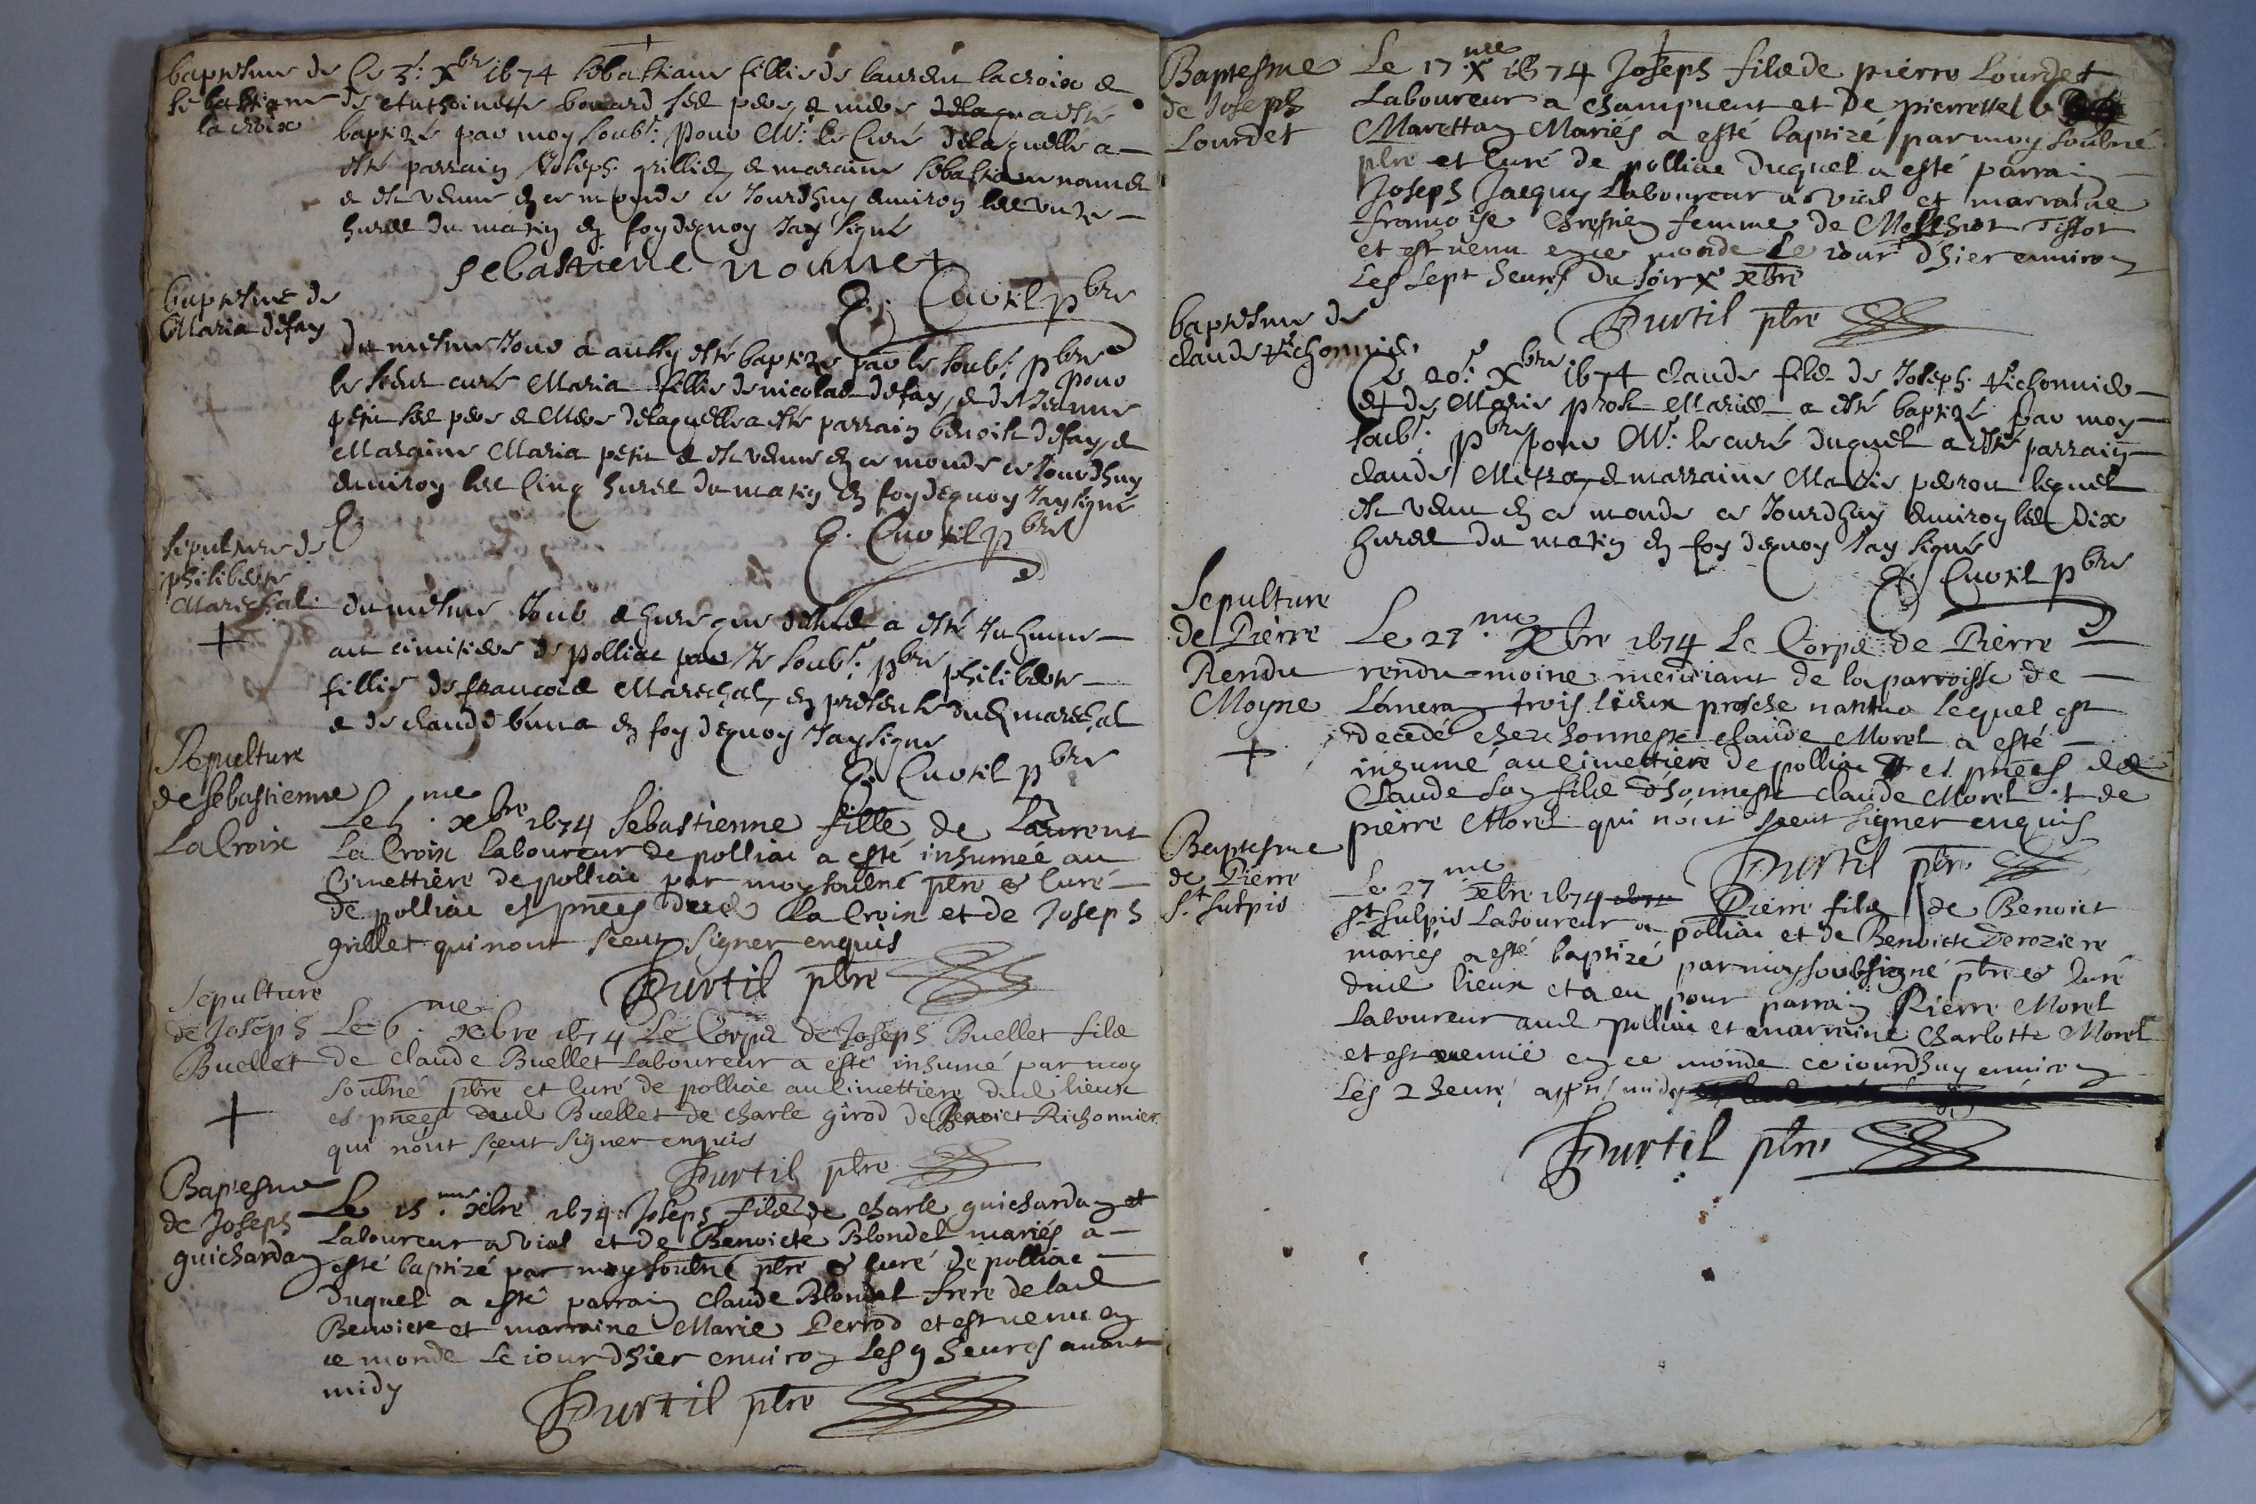 baptesme de
Sebastiane
la croix
Ce 3e. Xbre 1674 sebastiane fillie de laurent lacroix &
de Anthoinette bouard ses pere & mere a esté
baptizé par moy soubs. pour Mr. le Curé delaquelle a
esté parrain Joseph grillier & maraine sebastiane nomet
& est venue en ce monde ce Jourdhuy environ les unze
heures du matin en foy dequoy Jay signé
sebastiene nomet
C. Curtil pbre
baptesme de
Maria defay
du mesme Jour a aussy esté baptizé par le soub. pbre pour
le sieur curé Maria fillie de nicolas defay, & de Jeanne
petit ses pere & Mere delaquelle a esté parrain benoist defay, &
Maraine Maria petit & est venue en ce monde ce Jourdhuy
environ les cinq heures du matin en foy dequoy Jay signé
C. Curtil pbre
Sepulture de
philiberte
Marechal
du mesme Jour & heure que dessus a esté Inhumé
au cimitiere de polliac par le soub. pbre philiberte
fillie de francois Marechal, en presence dud marechal
& de claude buna en foy dequoy Jay signé
C. Curtil pbre
Sepulture
de Sebastienne
La Croix
Le me xbre 1674 Sebastienne fille de Laurent
La Croix laboureur de polliac a esté inhumée au
Cimettière de polliac par moy soubné pbre & Curé
de polliac es pnces dud La Croix et de Joseph
grillet qui nont sceut signer enquis
Purtil pbre
Sepulture
de Joseph
Buellet
Le 6.me xbre 1674 Le Corps de Joseph Buellet fils
de claude Buellet Laboureur a esté inhumé par moy
soubné pbre et Curé de polliac au Cimettiere dud lieux
es pnces dud Buellet de charle girod de Benoict Richonnier
qui nont sceut signer enquis
Purtil pbre
Baptesme
de Joseph
guichardon
Le 15.me xbre 1674 Joseph fils de charle guichardon et
Laboureur a vial et de Benoicte Blondel mariés a
esté baptizé par moy soubné pbre & Curé de polliac
duquel a esté parrain claude Blondel frere de lad
Benoicte et marraine Marie Perrod et est venu en
ce monde le jour dhier environ Les 9 heures avant
midy
Purtil pbre
Baptesme
de Joseph
Lourdet
Le 17me X 1674 Joseph fils de pierre Lourdet
Laboureur a champvent et de pierrette
Maretton Mariés a esté baptizé par moy soubné
pbre et Curé de polliac duquel a esté parrain
Joseph Jacquin Laboureur a vial et marraine
françoise Chrestien femme de Melchior Tissot
et est venu en ce monde Le jour dhier environ
Les sept heures du soir X xbre
Purtil pbre
baptesme de
claude Richonnier
Ce 20e. Xbre 1674 claude fils de Joseph Richonnier
& de Marie prost Mariés a esté baptizé par moy
soub. pbre pour Mr. le curé duquel a esté parrain
claude Metra, & marraine Marie peroux lequel
est venu en ce monde ce Jourdhuy environ les Dix
heures du matin en foy dequoy Jay signé
C. Curtil pbre
Sepulture
de Pierre
Rendu
Moyne
Le 27.me Xbre 1674 Le Corps de Pierre
rendu moine mendiant de la parroisse de
Laneran trois lieux proche nantua Lequel est
decedé chez honneste claude Morel a esté
inhumé au Cimettiere de polliac es pnces de
Claude son fils dhonneste Claude Morel et de
pierre Morel qui nont sceut signer enquis
Purtil pbre
Baptesme
de Pierre
St. Sulpis
Le 27me xbre 1674 Pierre fils de Benoict
St Sulpis Laboureur a polliac et de Benoicte Deroziere
mariés a esté baptizé par moy soubsigné pbre & Curé
dud lieux et a eu pour parrain Pierre Morel
Laboureur aud polliac et marraine Charlotte Morel
et est venue en ce monde ce jourdhuy environ
Les 2 heures apres midy
Purtil pbre